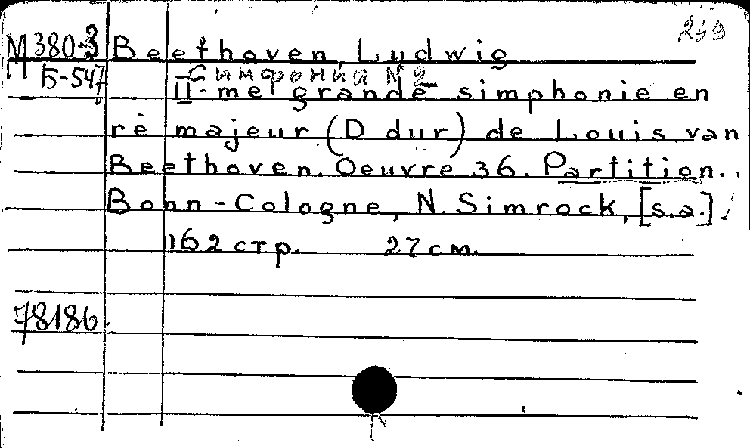 M380-3 Beethoven, Ludwig
M Б-547 Симфония №2
II-me grande simphonie en
rè majeur (D dur) de Louis van
Beethoven. Oeuvre 36. Partition.
Bonn-Cologne, N. Simrock, [s.a.]
162 стр. 27 см.
78186